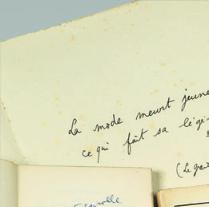 La mode meurt jeune
ce qui fait sa légè
(Le